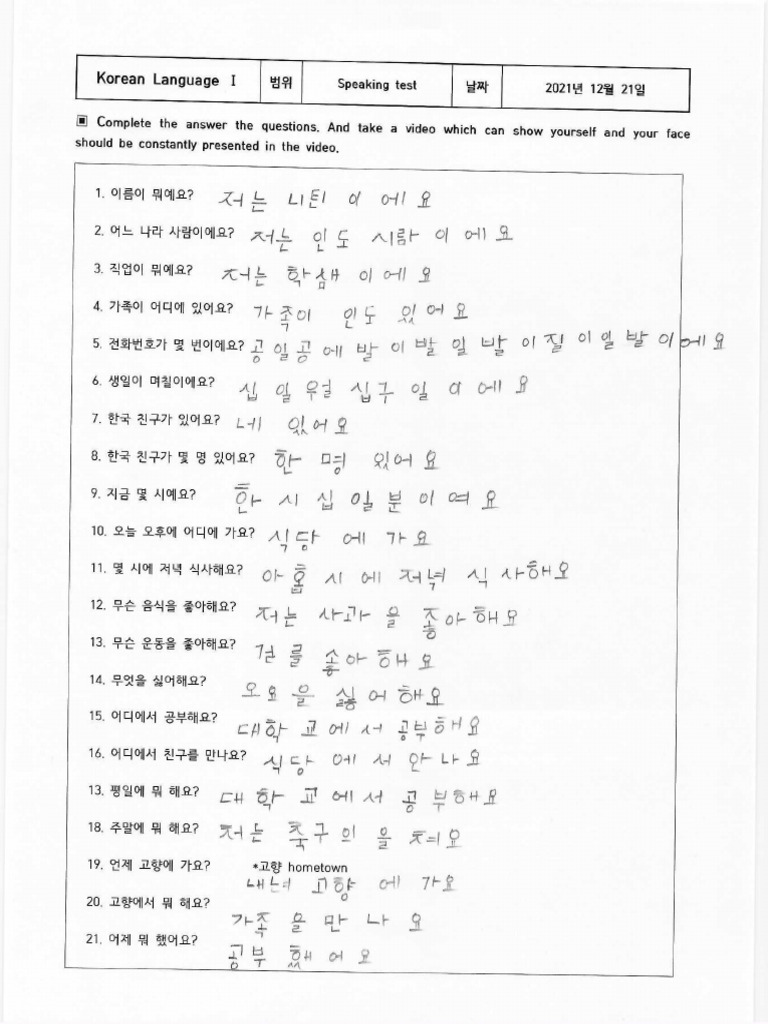 Korean Language I 범위 Speaking test 날짜 2021년 12월 21일
▣ Complete the answer the questions. And take a video which can show yourself and your face
should be constantly presented in the video.
1. 이름이 뭐예요? 저는 니틴 이 에요
2. 어느 나라 사람이에요? 저는 인도 시람 이 에요
3. 직업이 뭐예요? 저는 학생 이에요
4. 가족이 어디에 있어요? 가족이 인도 있어요
5. 전화번호가 몇 번이에요? 공일공에 발이발일발이질이일발이에요
6. 생일이 며칠이에요? 십 일 월 십구 일 이 에요
7. 한국 친구가 있어요? 네 있어요
8. 한국 친구가 몇 명 있어요? 한 명 있어요
9. 지금 몇 시예요? 한 시 십 일 분 이 여 요
10. 오늘 오후에 어디에 가요? 식당 에 가요
11. 몇 시에 저녁 식사해요? 아홉 시 에 저녁 식 사해요
12. 무슨 음식을 좋아해요? 저는 사과 을 좋아해요
13. 무슨 운동을 좋아해요? 를 좋아해요
14. 무엇을 싫어해요? 오요 을 싫어해요
15. 어디에서 공부해요? 대학 교에서 공부해요
16. 어디에서 친구를 만나요? 식당 에서 만나요
13. 평일에 뭐 해요? 대 학 교에서 공 부해요
18. 주말에 뭐 해요? 저는 축구 의 을 쳐요
19. 언제 고향에 가요? *고향 hometown
내년 고향 에 가요
20. 고향에서 뭐 해요?
가족 을 만 나 요
21. 어제 뭐 했어요?
공부 했어요